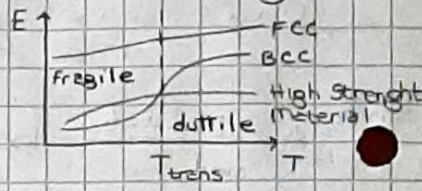 E
FCC
BCC
Fragile
High Strenght
Material
duttile
Ttrans
T